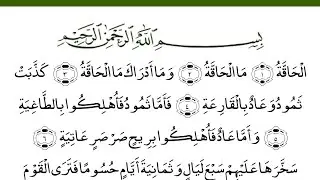 بِسْمِ اللَّهِ الرَّحْمَٰنِ الرَّحِيمِ
الْحَاقَّةُ ۝١ مَا الْحَاقَّةُ ۝٢ وَمَا أَدْرَاكَ مَا الْحَاقَّةُ ۝٣ كَذَّبَتْ
ثَمُودُ وَعَادٌ بِالْقَارِعَةِ ۝٤ فَأَمَّا ثَمُودُ فَأُهْلِكُوا بِالطَّاغِيَةِ
۝٥ وَأَمَّا عَادٌ فَأُهْلِكُوا بِرِيحٍ صَرْصَرٍ عَاتِيَةٍ ۝٦
سَخَّرَهَا عَلَيْهِمْ سَبْعَ لَيَالٍ وَثَمَانِيَةَ أَيَّامٍ حُسُومًا فَتَرَى الْقَوْمَ